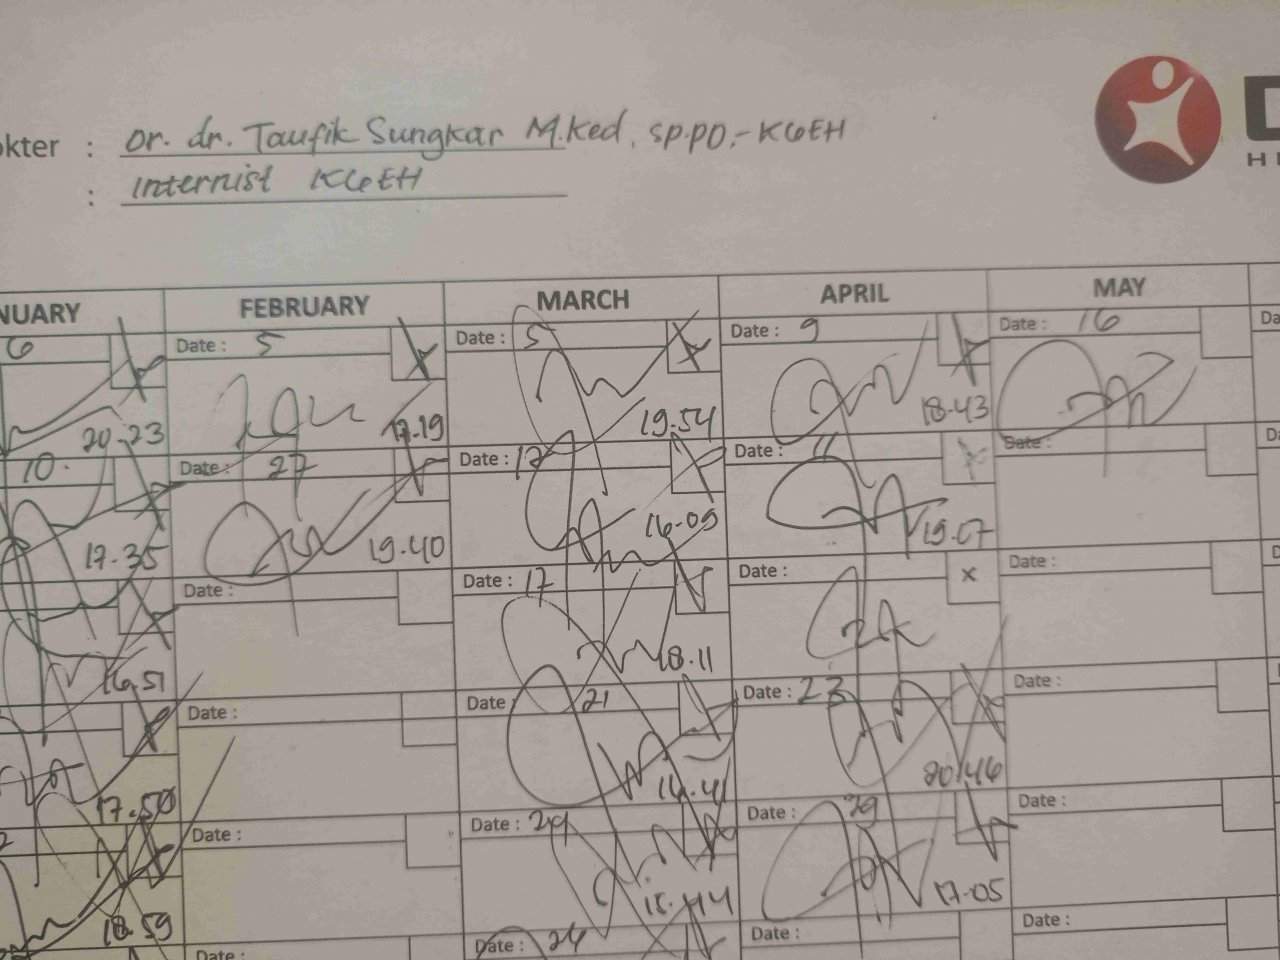 okter : Dr. dr. Taufik Sungkar M.Ked, Sp.PD,-KGEH
: Internist KGEH
D
H
NUARY FEBRUARY MARCH APRIL MAY
6 Date : 5 Date : 5 Date : 9 Date : 16 Da
20-23 17.19 19.54 18.43
10. Date : 27 Date : 12 Date : 11 Date : D
17.35 19.40 16-09 19.07
Date : Date : 17 Date : x Date : D
16.51 18.11
Date : Date : 21 Date : 23 Date :
17.50 16.41 20.46
2 Date : Date : 29 Date : 29 Date :
18.59 15.44 17.05
Date : Date : 24 Date : Date :